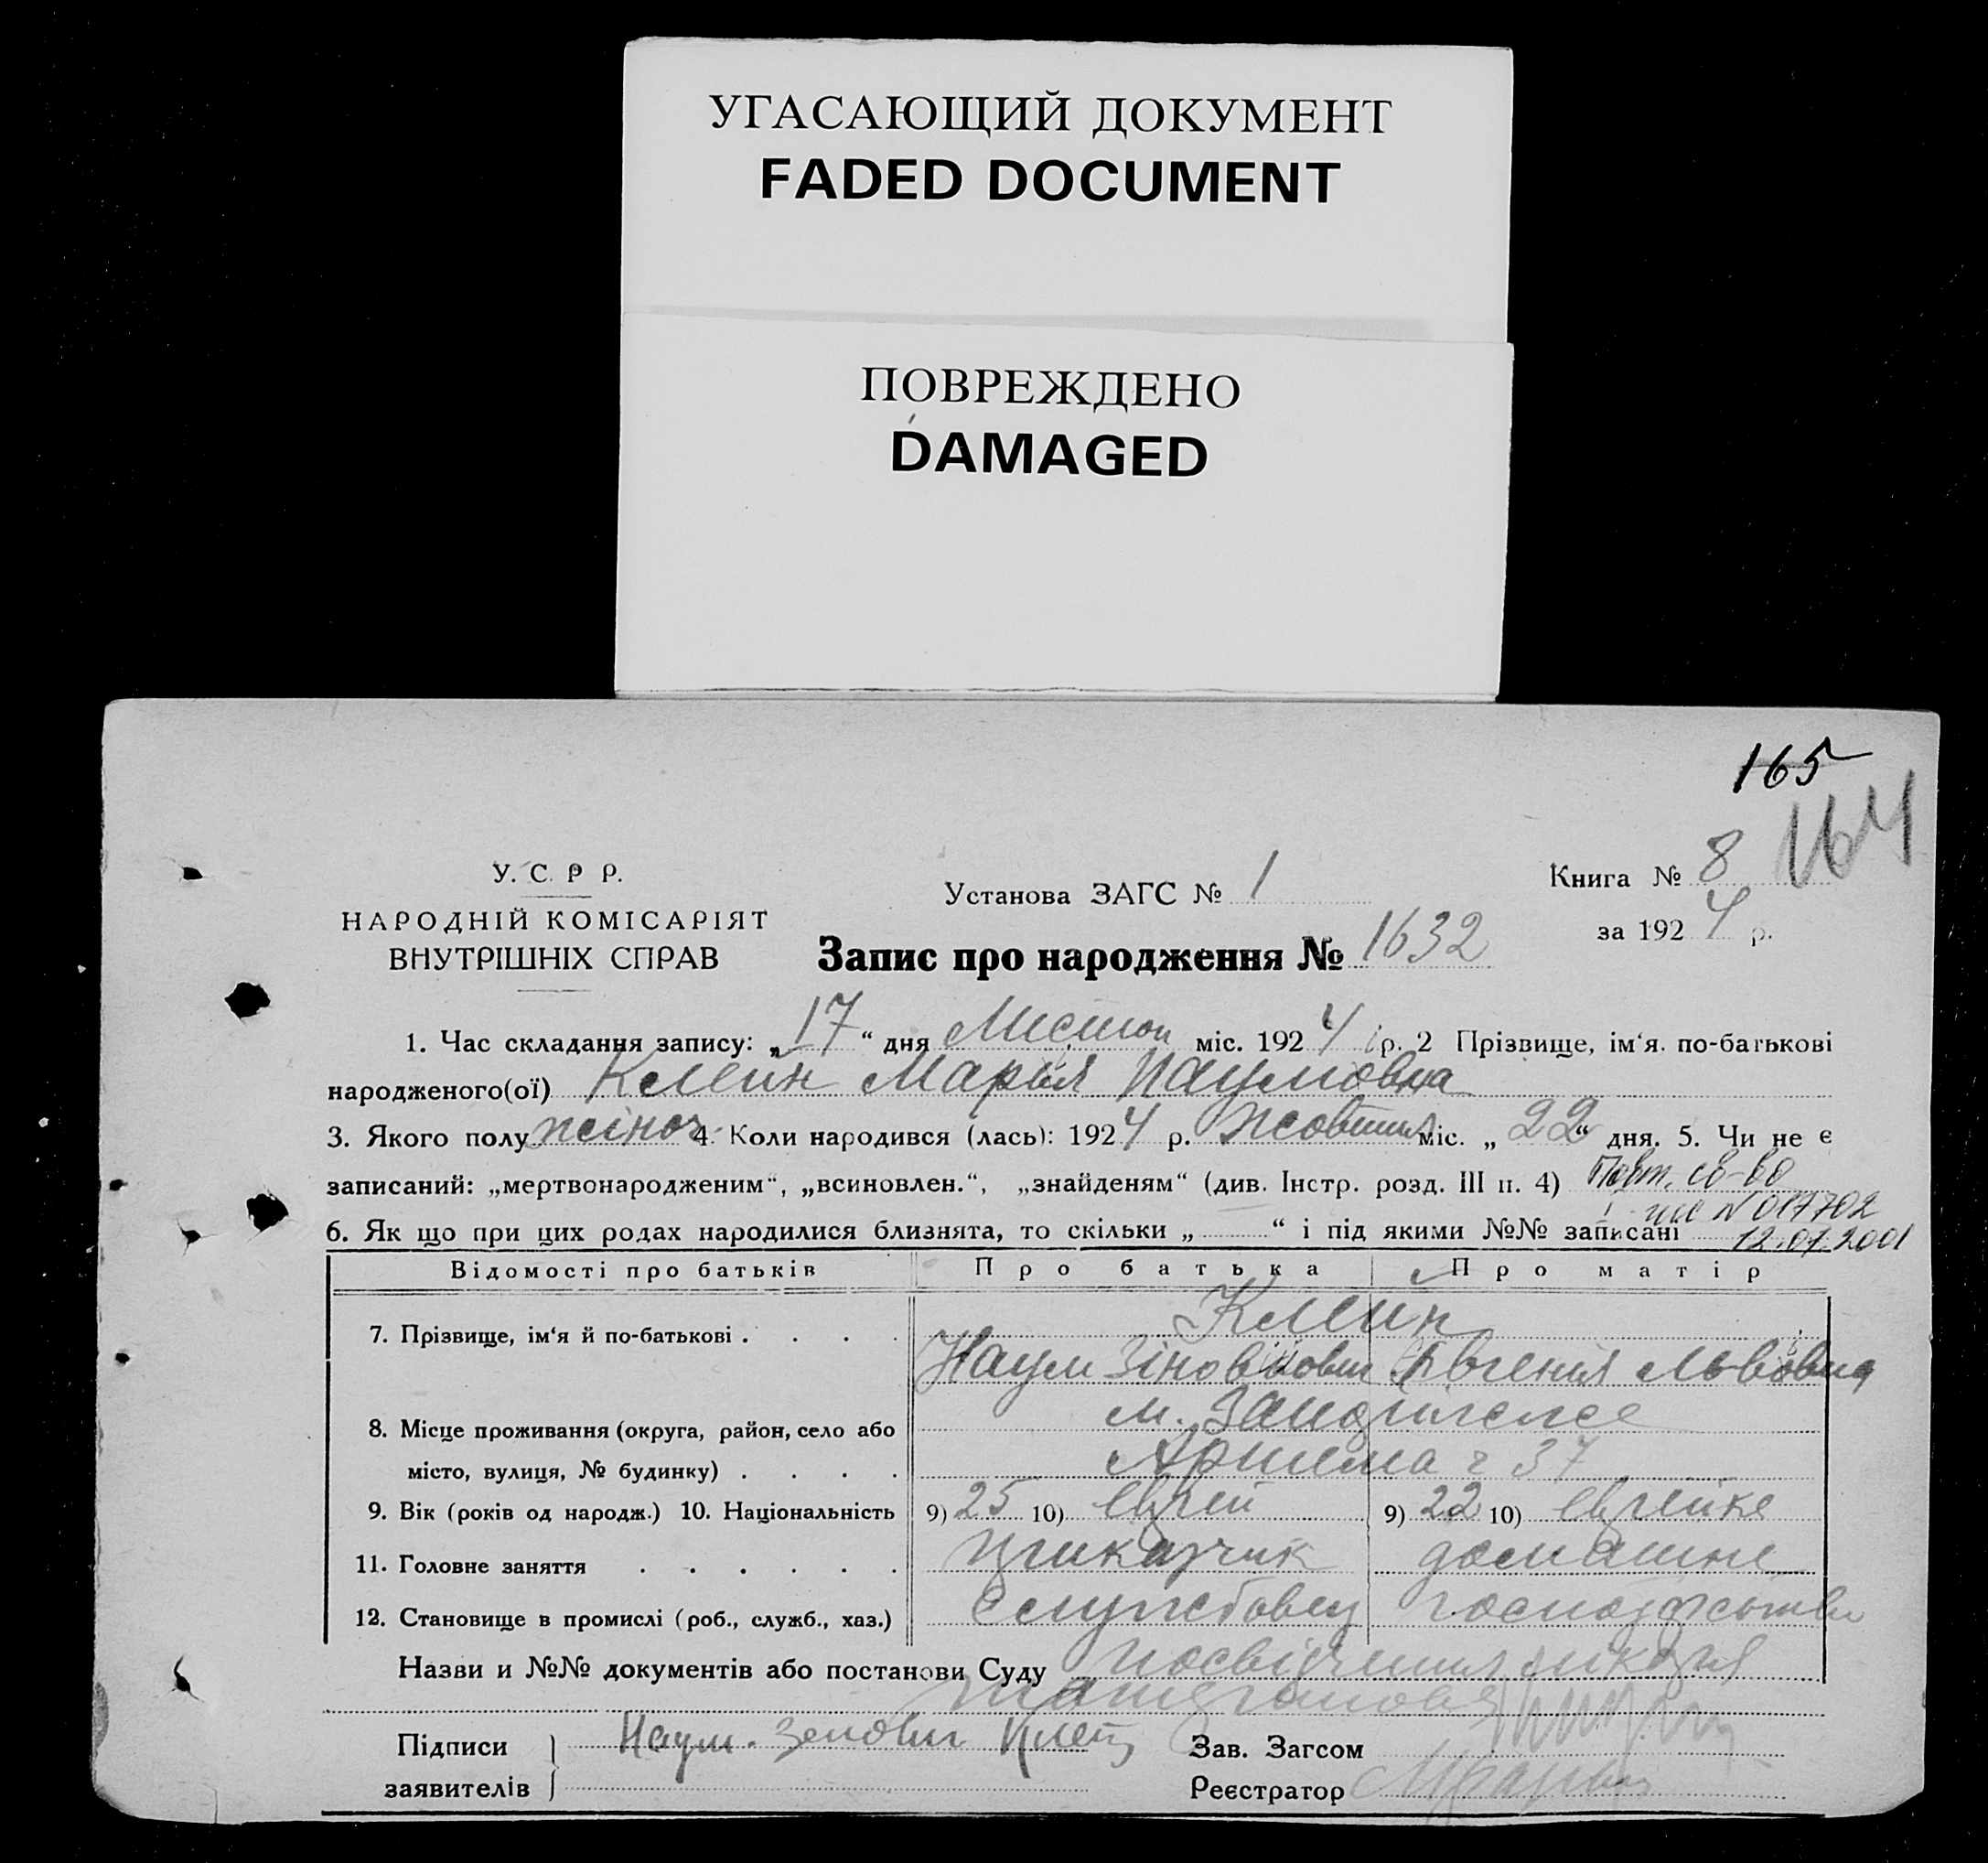 УГАСАЮЩИЙ ДОКУМЕНТ
FADED DOCUMENT
ПОВРЕЖДЕНО
DAMAGED
165
164
У. С. Р Р.
НАРОДНІЙ КОМІСАРІЯТ
ВНУТРІШНІХ СПРАВ
Установа ЗАГС № 1
Книга № 8
за 1924 р.
Запис про народження № 1632
1. Час складання запису: „17“ дня Листоп міс. 1924 р. 2 Прізвище, ім‘я. по-батькові
народженого(ої) Клейн Марія Наумовна
3. Якого полу жіноч 4. Коли народився (лась): 1924 р. Жовтня міс. „22“ дня. 5. Чи не є
записаний: „мертвонародженим“, „всиновлен.“, „знайденям“ (див. Інстр. розд. III п. 4) Повт. св-во
N 017702
6. Як що при цих родах народилися близнята, то скільки „ “ і під якими №№ записані 12.07.2001
Відомості про батьків Про батька Про матір
7. Прізвище, ім‘я й по-батькові . . . . Клейн
Наум Євгенія Львовна
8. Місце проживання (округа, район, село або м.
місто, вулиця, № будинку) . . . . Артема ч 37
9. Вік (років од народж.) 10. Національність 9) 25 10) Єврей 9) 22 10) Єврейка
11. Головне заняття . . . . . . Приказчик домашнє
12. Становище в промислі (роб., служб., хаз.) Службовец господарство
Назви и №№ документів або постанови Суду посвідчення лікаря
Підписи
заявителів
Наум.
Зав. Загсом
Реєстратор